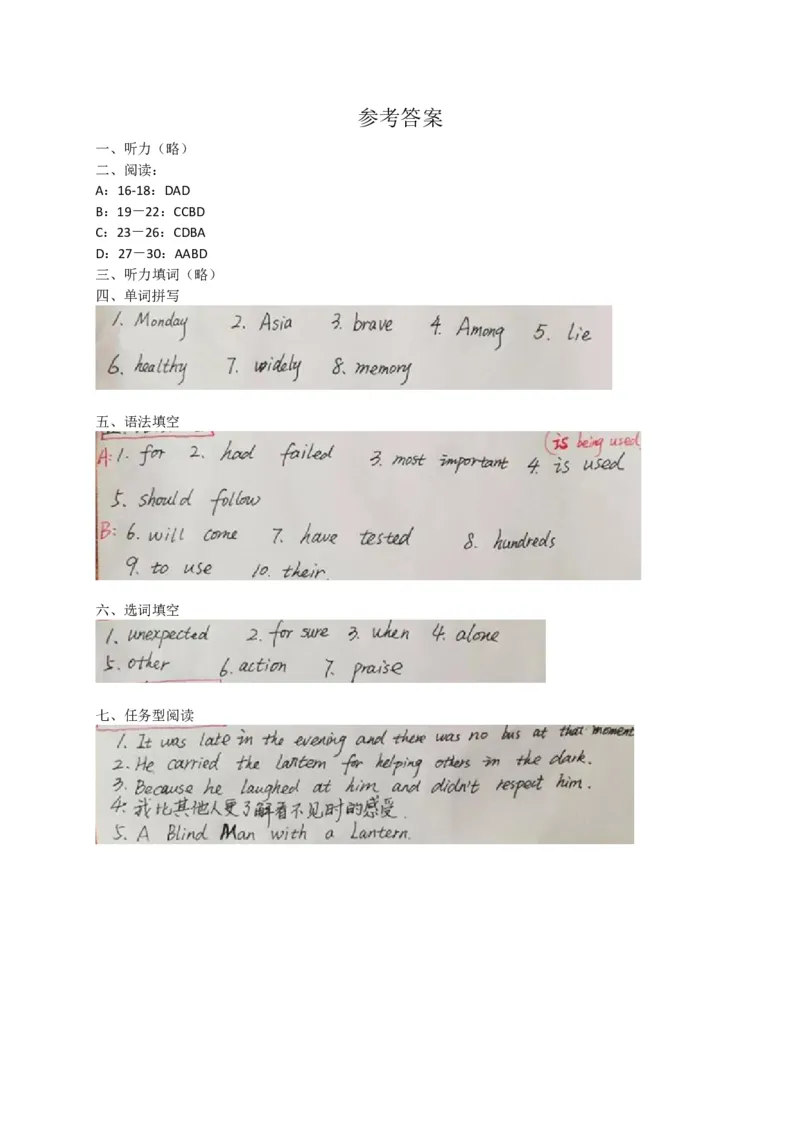 参考答案
一、听力（略）
二、阅读：
A：16-18：DAD
B：19－22：CCBD
C：23－26：CDBA
D：27－30：AABD
三、听力填词（略）
四、单词拼写
1. Monday 2. Asia 3. brave 4. Among 5. lie
6. healthy 7. widely 8. memory
五、语法填空
(is being used
A: 1. for 2. had failed 3. most important 4. is used
5. should follow
B: 6. will come 7. have tested 8. hundreds
9. to use 10. their.
六、选词填空
1. unexpected 2. for sure 3. when 4. alone
5. other 6. action 7. praise
七、任务型阅读
1. It was late in the evening and there was no bus at that moment
2. He carried the lantern for helping others in the dark.
3. Because he laughed at him and didn't respect him.
4: 我比其他人更了解看不见时的感受.
5. A Blind Man with a Lantern.